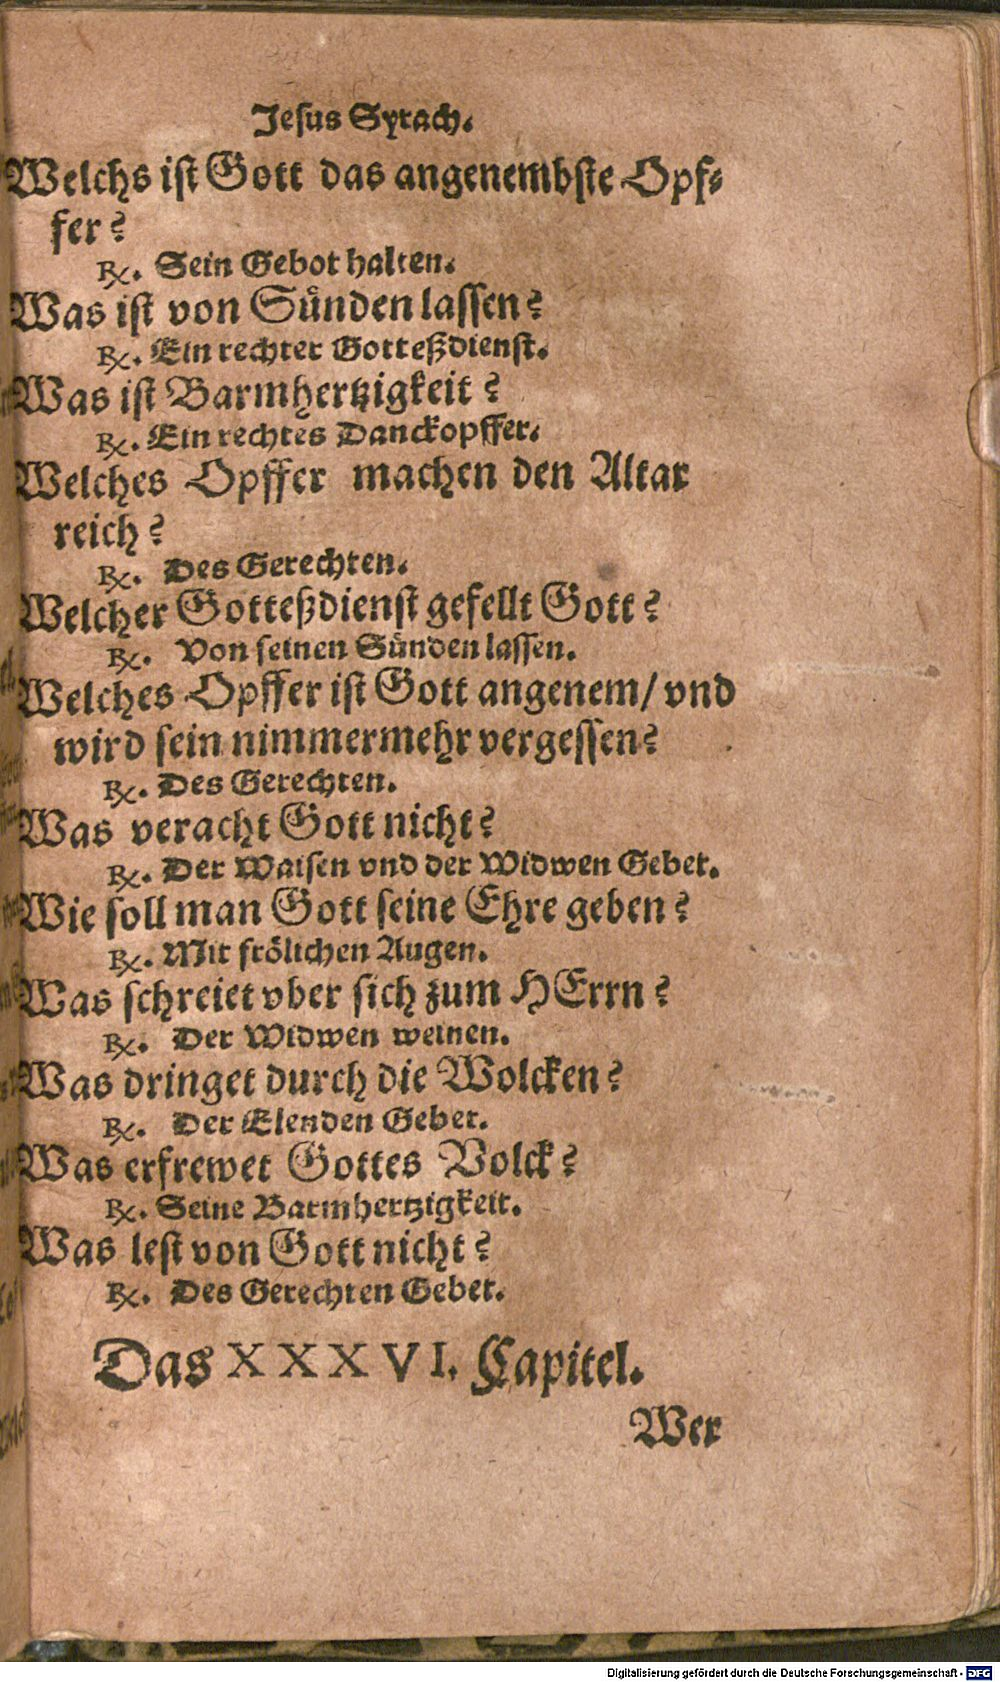 Jesus Syrach.
Welchs ist Gott das angenembste Opf-
fer?
℞. Sein Gebot halten.
Was ist von Sünden lassen?
℞. Ein rechter Gotteßdienst.
Was ist Barmhertzigkeit?
℞. Ein rechtes Danckopffer.
Welches Opffer machen den Altar
reich?
℞. Des Gerechten.
Welcher Gotteßdienst gefellt Gott?
℞. Von seinen Sünden lassen.
Welches Opffer ist Gott angenem/ vnd
wird sein nimmermehr vergessen?
℞. Des Gerechten.
Was veracht Gott nicht?
℞. Der Waisen vnd der Widwen Gebet.
Wie soll man Gott seine Ehre geben?
℞. Mit frölichen Augen.
Was schreiet vber sich zum HErrn?
℞. Der Widwen weinen.
Was dringet durch die Wolcken?
℞. Der Elenden Gebet.
Was erfrewet Gottes Volck?
℞. Seine Barmhertzigkeit.
Was lest von Gott nicht?
℞. Des Gerechten Gebet.
Das XXXVI. Capitel.
Wer
Digitalisierung gefördert durch die Deutsche Forschungsgemeinschaft - DFG